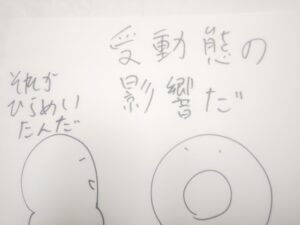 受動態の
影響だ
それが
ひらめい
たんだ